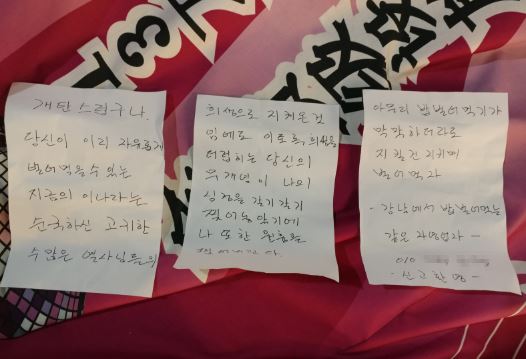 개탄 스럽구나.
당신이 이리 자유롭게
벌어먹을수 있는
지금의 이나라는
순국하신 고귀한
수많은 열사님들의
희생으로 지켜온것
임에도 이토록, 희생을
더럽히는 당신의
무개념이 나의
심정을 갈기갈기
찢어놓았기에
나 또한
찢어버린다.
아무리 밥벌어먹기가
막막하더라도
지킬건 지키며
벌어먹자
-강남에서 밥벌어먹는
같은 자영업자-
010
-신고환영-